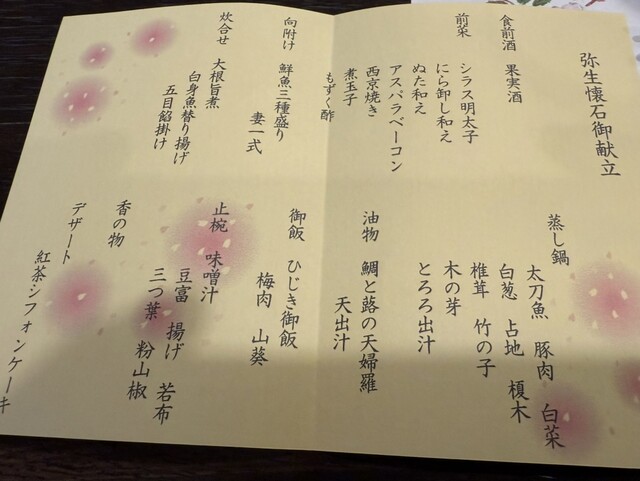 弥生懐石御献立
食前酒　果実酒
前菜　シラス明太子
にら卸し和え
ぬた和え
アスパラベーコン
西京焼き
煮玉子
もずく酢
向附け　鮮魚三種盛り
妻一式
炊合せ　大根旨煮
白身魚替り揚げ
五目餡掛け
蒸し鍋
太刀魚　豚肉　白菜
白葱　占地　榎木
椎茸　竹の子
木の芽
とろろ出汁
油物　鯛と蕗の天婦羅
天出汁
御飯　ひじき御飯
梅肉　山葵
止椀　味噌汁
豆富　揚げ　若布
三つ葉　粉山椒
香の物
デザート
紅茶シフォンケーキ